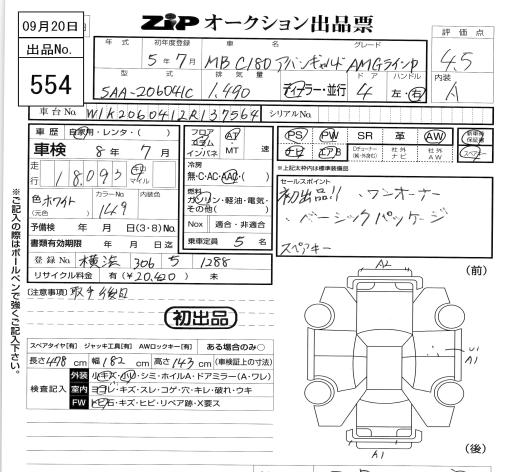 09月20日
ZiP オークション出品票
出品No.
554
評価点
4.5
内装
A
年式 初年度登録 車名 グレード
5年7月 MB C180 アバンギャルド AMGライン
型式 排気量 ドア ハンドル
5AA-206041C 1,490 ディーラー・並行 4 左・右
車台No. W1K2060412R137564 シリアルNo.
車歴 自家用・レンタ・( )
車検 8年7月
走行 18,093 キロ マイル
色 ホワイト (元色) カラーNo. 149 内装色
予備検 年 月 日(3・8)No.
書類有効期限 年 月 日迄
登録No. 横浜 306 5 1288
リサイクル料金 有(¥20,420) 未
フロア コラム インパネ AT ・MT 速
冷房 無・C・AC・AAC・(
燃料 ガソリン・軽油・電気・その他( )
Nox 適合・非適合
乗車定員 5 名
PS PW SR 革 AW
ナビ エアB Dチューナー(純・外含む) 社外ナビ 社外AW
新車時保証書
スペアキー
※上記太枠は標準装備品
セールスポイント
初出品!! 、ワンオーナー
、ベーシックパッケージ
スペアキー
(注意事項) 取手後日
初出品
スペアタイヤ[有] ジャッキ工具[有] AWロックキー[有] ある場合のみ○
長さ 478 cm 幅 182 cm 高さ 143 cm (車検証上の寸法)
検査記入
外装 小キズ・小ハ・シミ・ホイルA・ドアミラー(A・ワレ)
室内 ヨゴレ・キズ・スレ・コゲ・穴・キレ・破れ・ウキ
FW トビ石・キズ・ヒビ・リペア跡・X要ス
※ご記入の際はボールペンで強くご記入下さい。
(前)
A2
A1
A1
(後)